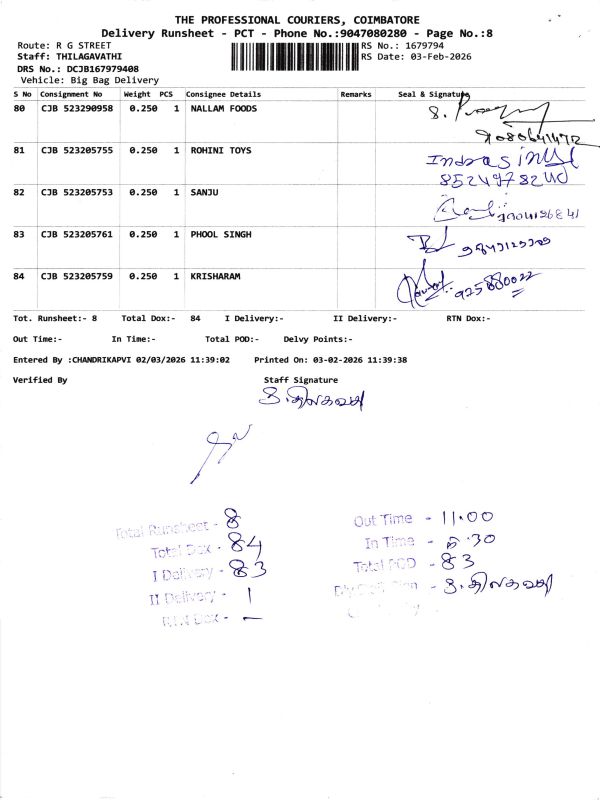 THE PROFESSIONAL COURIERS, COIMBATORE
Delivery Runsheet - PCT - Phone No.:9047080280 - Page No.:8
Route: R G STREET
RS No.: 1679794
Staff: THILAGAVATHI
RS Date: 03-Feb-2026
DRS No.: DCJB167979408
Vehicle: Big Bag Delivery
S No Consignment No Weight PCS Consignee Details Remarks Seal & Signature
80 CJB 523290958 0.250 1 NALLAM FOODS
9080641472
81 CJB 523205755 0.250 1 ROHINI TOYS
82 CJB 523205753 0.250 1 SANJU
83 CJB 523205761 0.250 1 PHOOL SINGH
84 CJB 523205759 0.250 1 KRISHARAM
Tot. Runsheet:- 8 Total Dox:- 84 I Delivery:- II Delivery:- RTN Dox:-
Out Time:- In Time:- Total POD:- Delvy Points:-
Entered By :CHANDRIKAPVI 02/03/2026 11:39:02 Printed On: 03-02-2026 11:39:38
Verified By Staff Signature
த.திலகவதி
Total Runsheet - 8
Total Dox - 84
I Delivery - 83
II Delivery - 1
RTN Dox - -
Out Time - 11.00
In Time - 5.30
Total POD - 83
த.திலகவதி